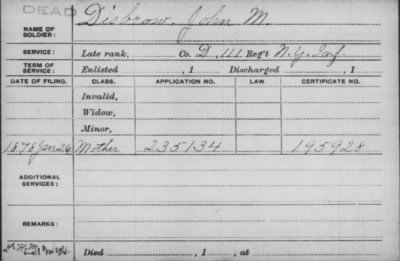 DEAD
NAME OF SOLDIER: Disbrow, John M.
SERVICE: Late rank, Co. D, 111 Reg't N.Y. Inf
TERM OF SERVICE: Enlisted , 1 Discharged , 1
DATE OF FILING. CLASS. APPLICATION NO. LAW. CERTIFICATE NO.
Invalid,
Widow,
Minor,
1878 Jan 26 Mother 235134 195928
ADDITIONAL SERVICES:
REMARKS:
Died , 1 , at